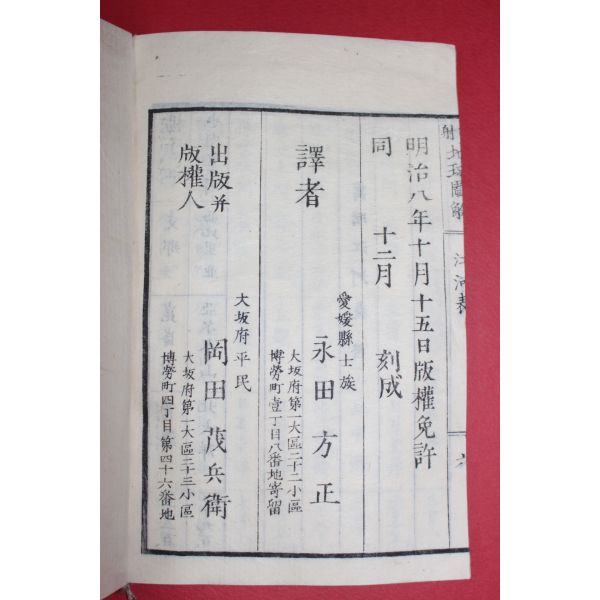 明治八年十月十五日版權免許
同 十二月 刻成
愛媛縣士族
譯者 永田方正
大坂府第一大區二十二小區
博勞町壹丁目八番地寄留
大坂府平民
出版并
版權人 岡田茂兵衛
大坂府第一大區二十三小區
博勞町四丁目第四十六番地